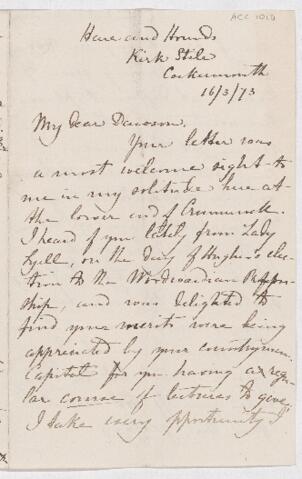 ACC 1010
Hare and Hounds
Kirk Stile
Cockermouth
16/3/73
My Dear Dawson.
Your letter was
a most welcome sight to
me in my solitude here at
the lower end of Crummock.
I heard of you lately, from Lady
Lyell, on the day of Hughes's elec-
tion to the Woodwardian Profess-
ship, and was delighted to
find your merits were being
appreciated by your countrymen.
Capital for you having a regu-
lar course of lectures to give.
I take every opportunity I